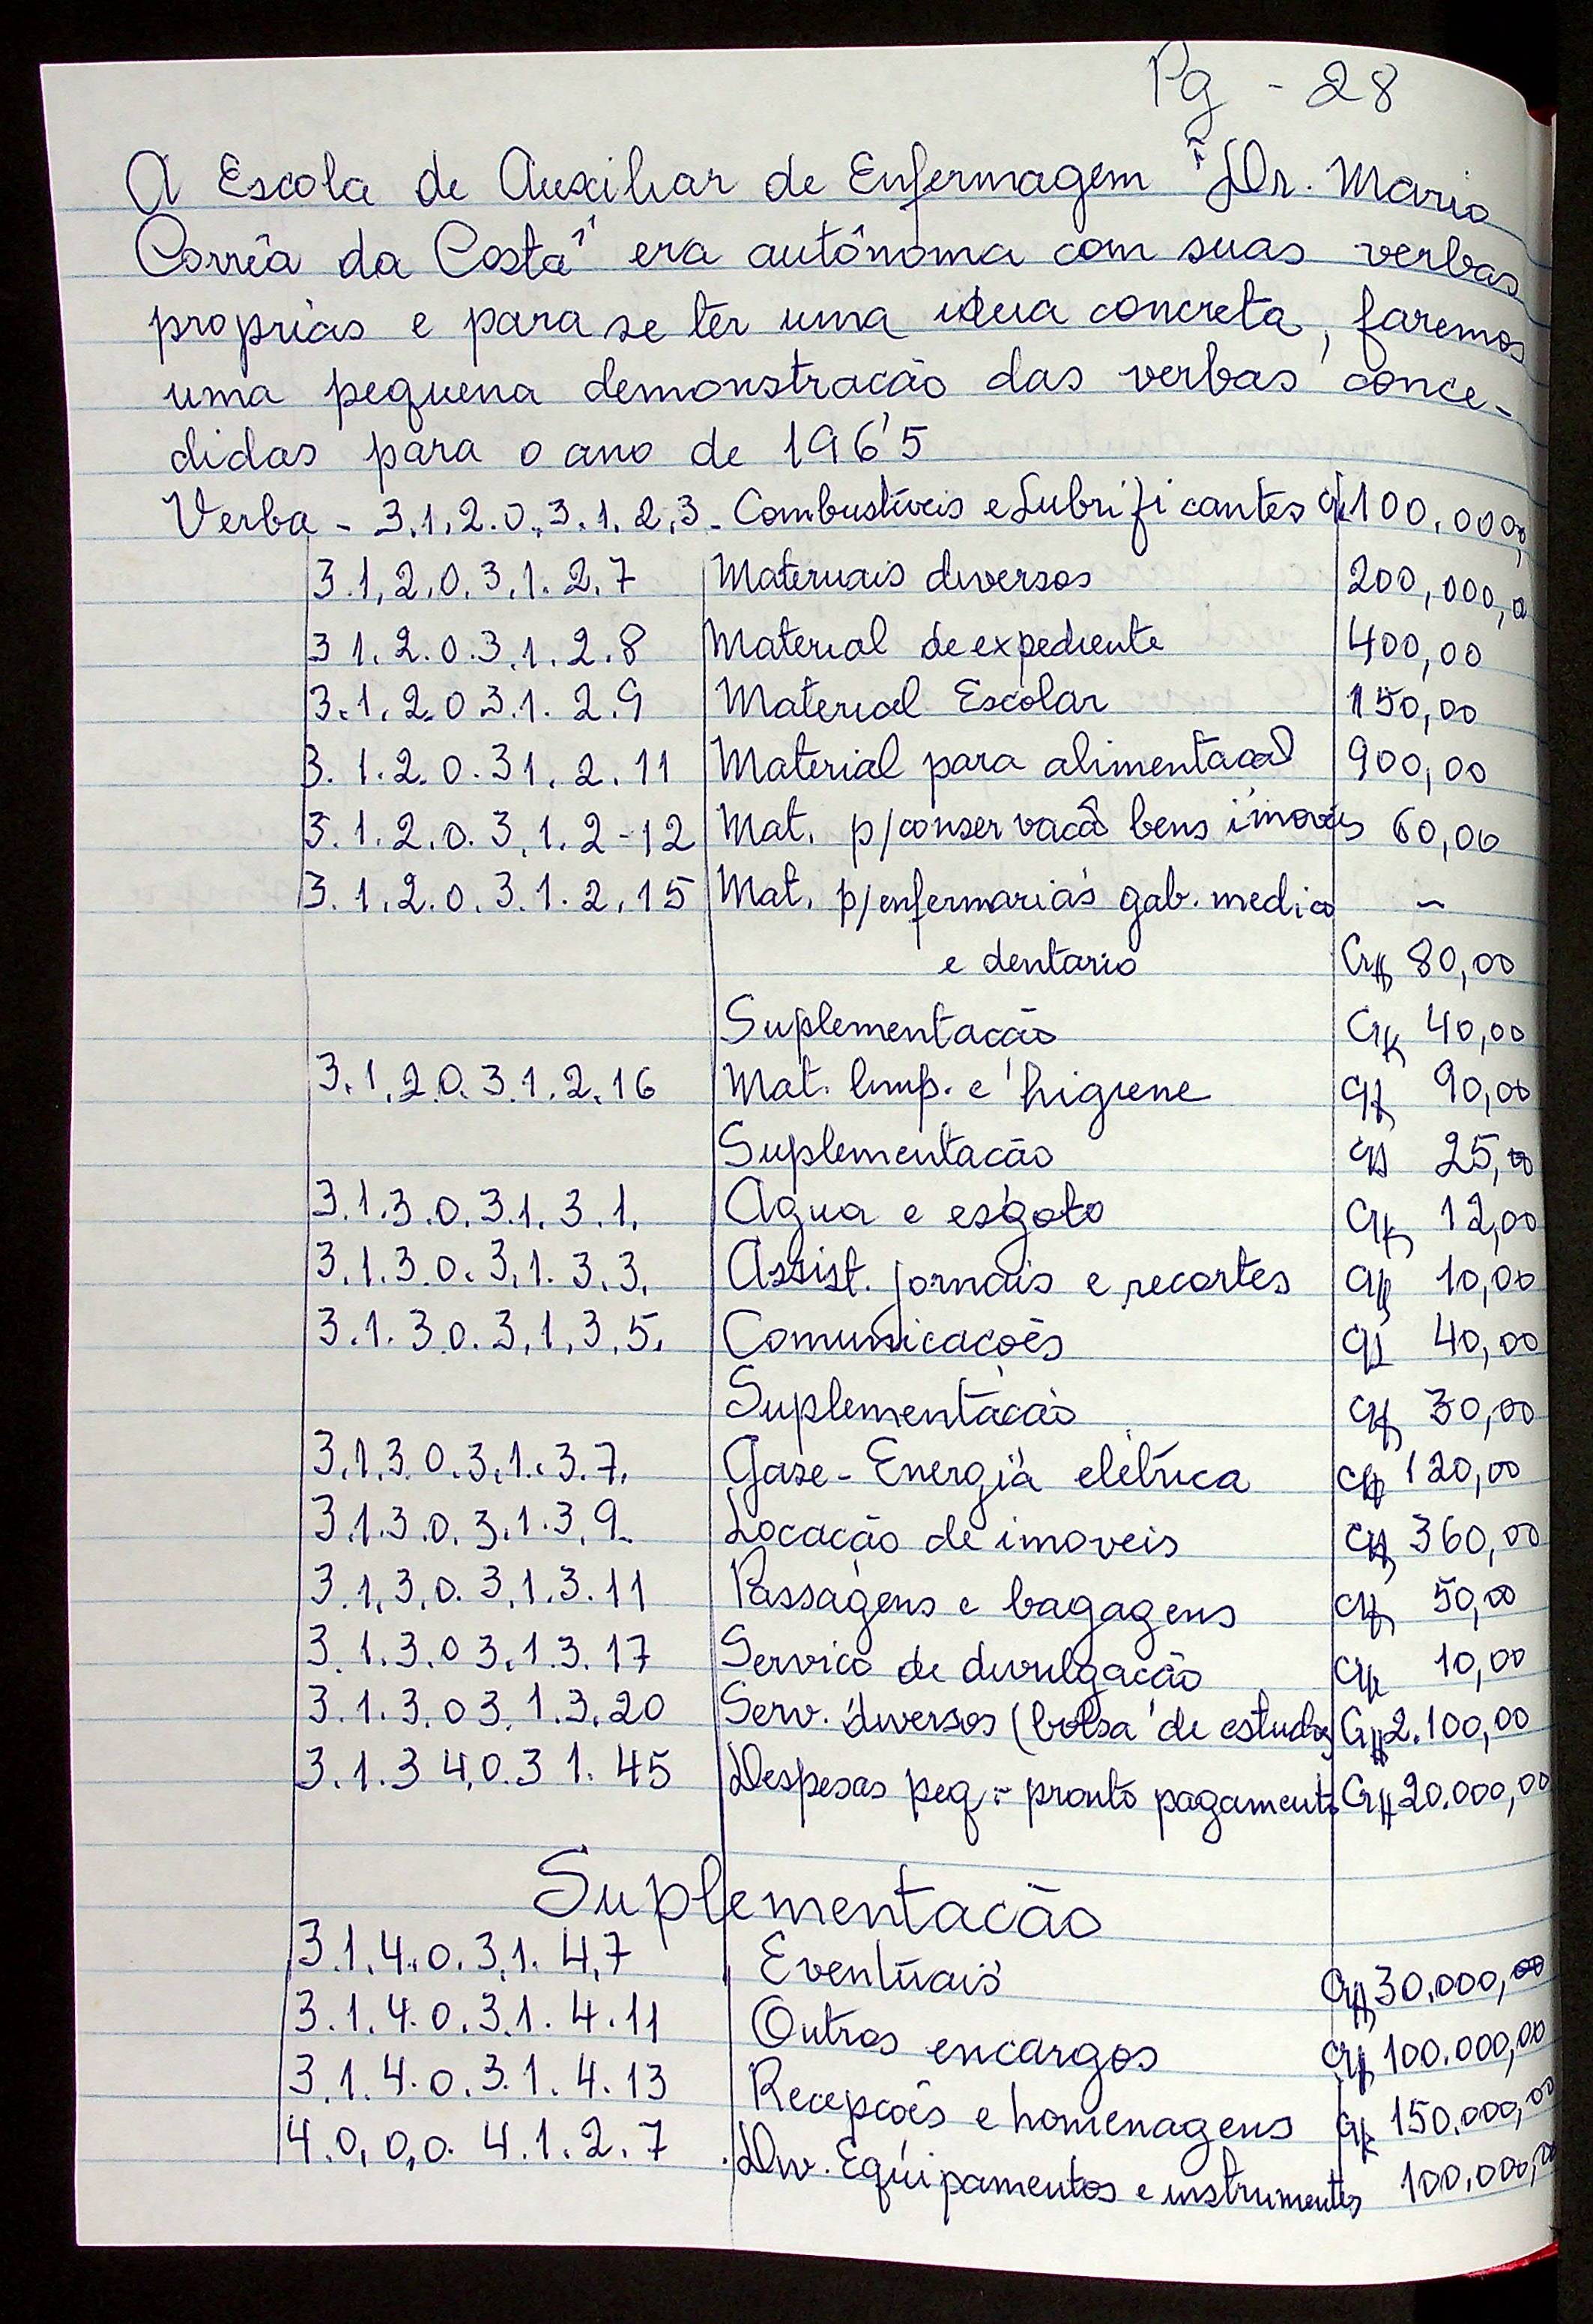 Pg - 28
A Escola de Auxiliar de Enfermagem "Dr. Mario
Corrêa da Costa" era autônoma com suas verbas
proprias e para se ter uma ideia concreta, faremos
uma pequena demonstracão das verbas conce-
didas para o ano de 1965
Verba - 3.1.2.0.3.1.2.3 - Combustíveis e Lubrificantes Cr$ 100.000,
3.1.2.0.3.1.2.7 Materiais diversos 200,000,0
3 1.2.0.3.1.2.8 Material de expediente 400,00
3.1.2.0 3.1.2.9 Material Escolar 150,00
3.1.2.0.31.2.11 Material para alimentacao 900,00
3.1.2.0.3.1.2-12 Mat. p/conservacão bens imoveis 60,00
3.1.2.0.3.1.2.15 Mat. p/enfermarias gab. medico -
e dentario Cr$ 80,00
Suplementacão Cr$ 40,00
3.1.2.0.3.1.2.16 Mat. limp. e higiene Cr$ 90,00
Suplementacão Cr$ 25,00
3.1.3.0.3.1.3.1. Agua e esgoto Cr$ 12,00
3.1.3.0.3.1.3.3. Assist. jornais e recortes Cr$ 10,00
3.1.3.0.3.1.3.5. Comunicacoẽs Cr$ 40,00
Suplementacão Cr$ 30,00
3.1.3.0.3.1.3.7. Gase - Energia elétrica Cr$ 120,00
3.1.3.0.3.1.3.9. Locacão de imoveis Cr$ 360,00
3.1.3.0.3.1.3.11 Passagens e bagagens Cr$ 50,00
3.1.3.0 3.1.3.17 Servico de divulgacão Cr$ 10,00
3.1.3.0 3.1.3.20 Serv. diversos (bolsa de estudos Cr$ 2.100,00
3.1.3 4,0.3 1.45 Despesas peq:- pronto pagamento Cr$ 20.000,00
Suplementacão
3.1.4.0.3.1.4.7 Eventuais Cr$ 30.000,00
3.1.4.0.3.1.4.11 Outros encargos Cr$ 100.000,00
3.1.4.0.3.1.4.13 Recepcoẽs e homenagens Cr$ 150.000,00
4.0,0,0.4.1.2.7 Div. Equipamentos e instrumentos 100,000,00